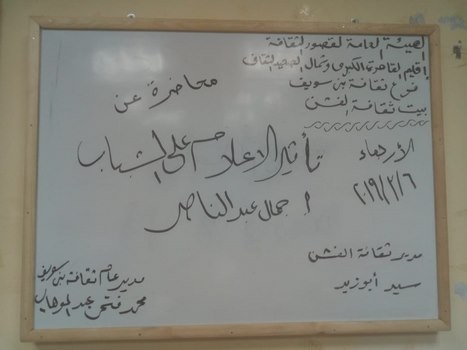 الهيئة العامة لقصور الثقافة
إقليم القاهرة الكبرى وشمال الصعيد الثقافى
فرع ثقافة بنى سويف
بيت ثقافة الفشن
محاضرة عن
تأثير الاعلام على الشباب
أ جمال عبد الناصر
الأربعاء
٢٠١٩/٢/٦
مدير ثقافة الفشن
سيد أبوزيد
مدير عام ثقافة بنى سويف
محمد فتحى